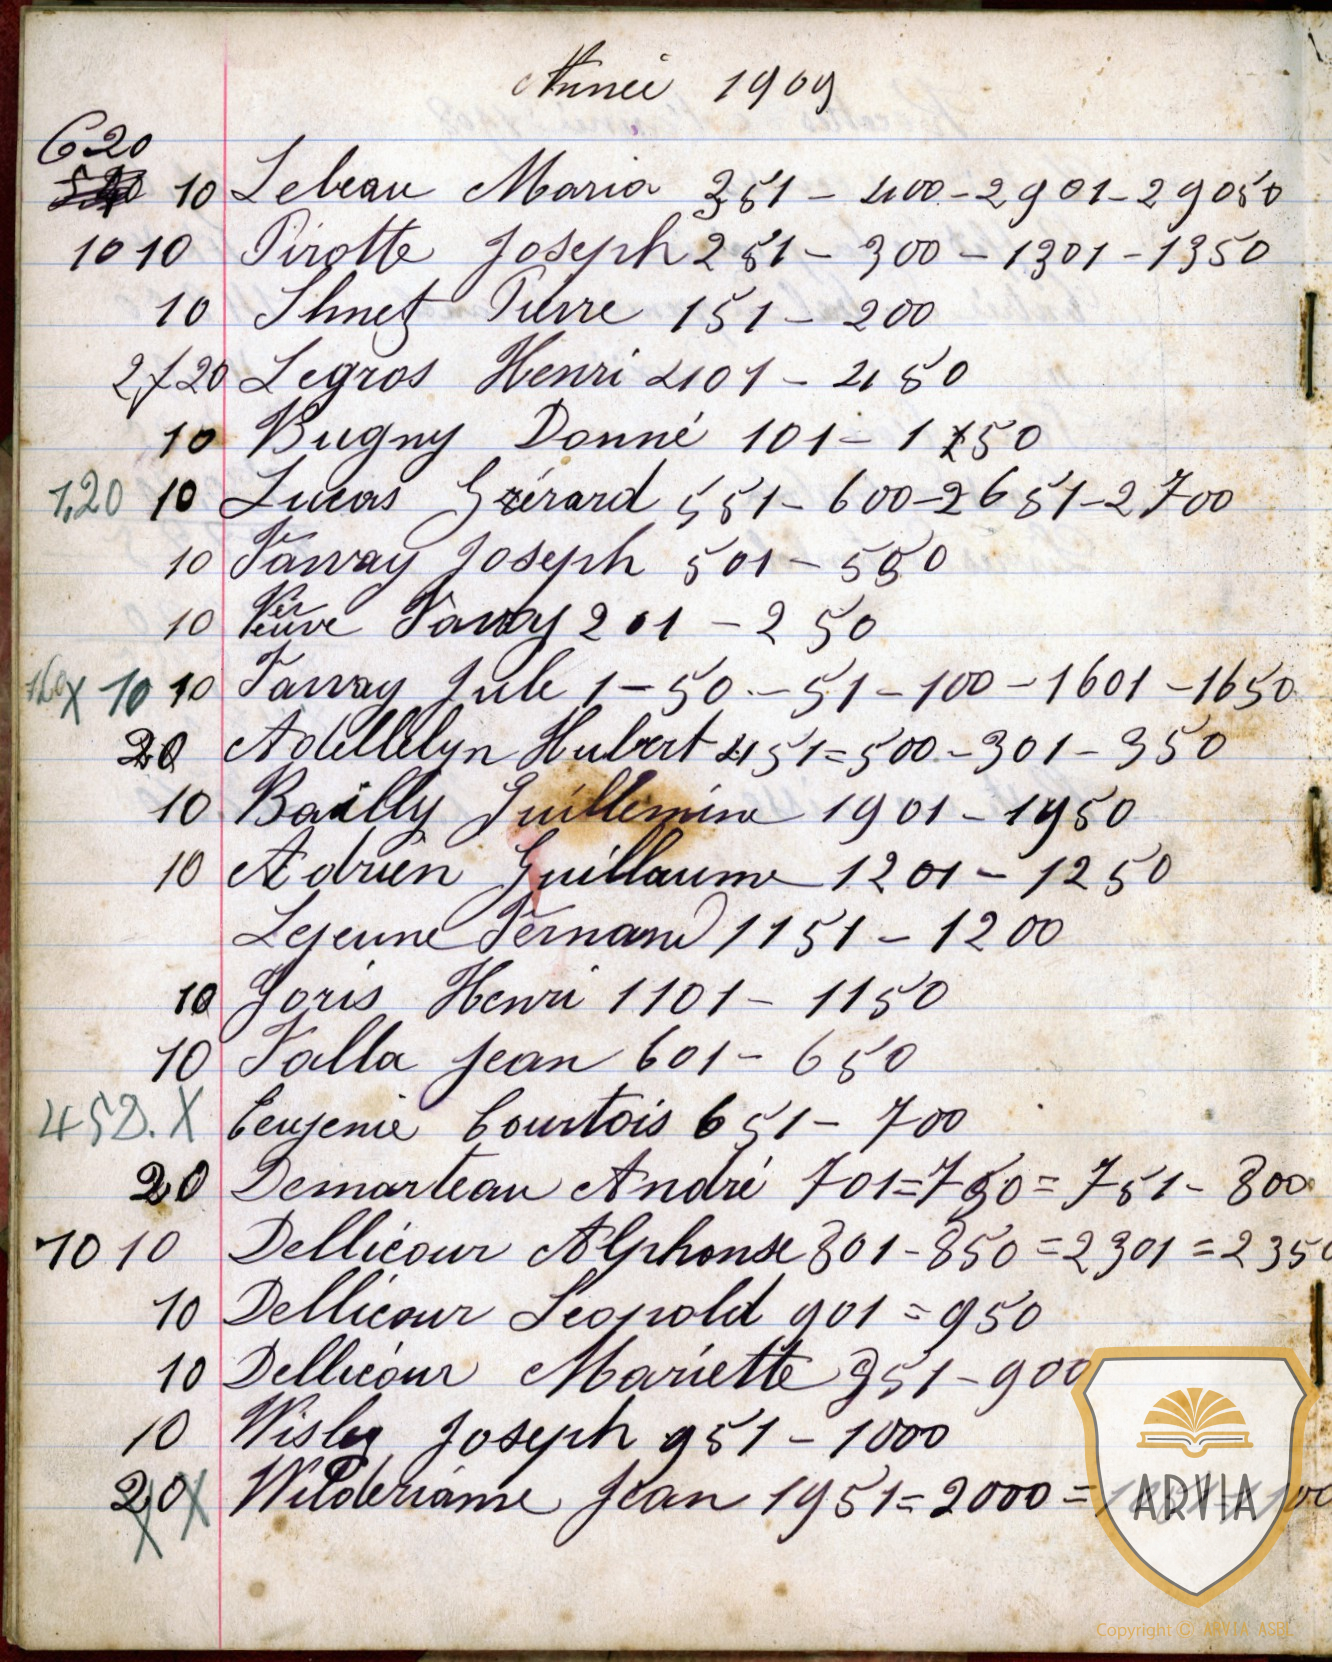 Année 1909
620
10 Lebeau Maria 351 - 400 - 2901 - 29050
10 10 Pirotte Joseph 251 - 300 - 1301 - 1350
10 Ihnez Pierre 151 - 200
20 Legros Henri 401 - 450
10 Bugny Donné 101 - 150
1,20 10 Lucas Gérard 551 - 600 - 2651 - 2700
10 Joseph 501 - 550
10 Veuve 201 - 250
X 10 10 Jule 1 - 50 - 51 - 100 - 1601 - 1650
20 Hubert 451 = 500 - 301 - 350
10 Bailly Guillemine 1901 - 1950
10 Adrien Guillaume 1201 - 1250
Lejeune Fernand 1151 - 1200
10 Joris Henri 1101 - 1150
10 Valla Jean 601 - 650
X Eeugenie Courtois 651 - 700
20 Demarteau André 701 = 750 = 751 - 800
10 10 Dellicour Alphonse 801 - 850 = 2301 = 2350
10 Dellicour Léopold 901 = 950
10 Dellicour Mariette 851 - 900
10 Joseph 951 - 1000
20 X Wilderiame Jean 1951 = 2000 =
ARVIA
Copyright © ARVIA ASBL